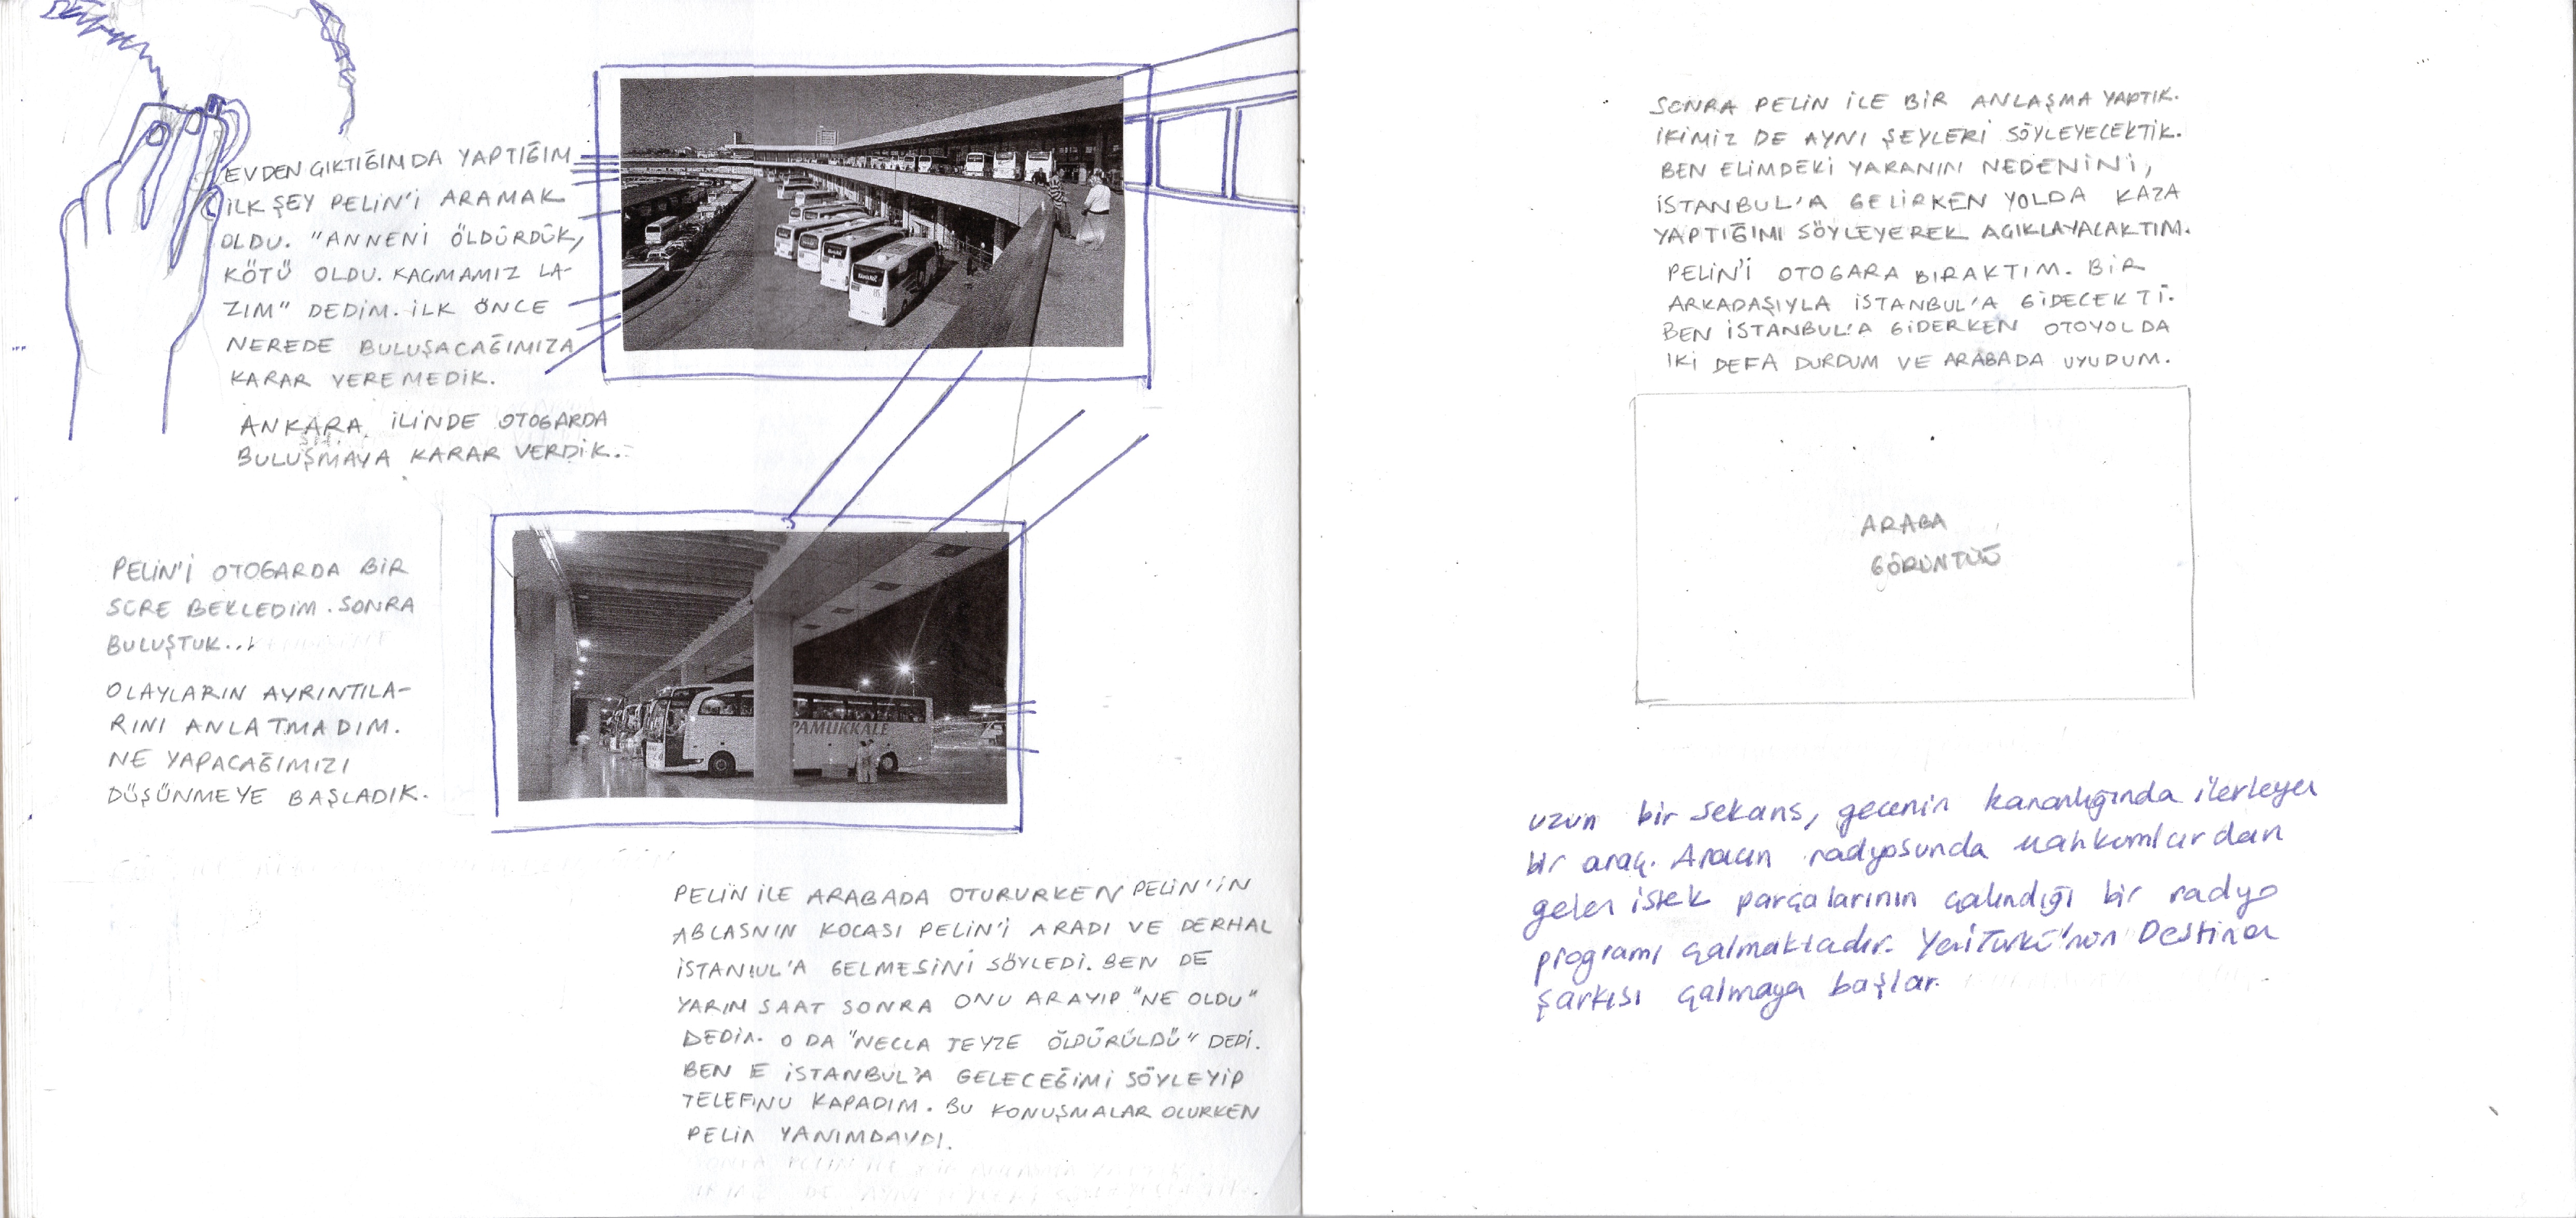 EVDEN ÇIKTIĞIMDA YAPTIĞIM
İLK ŞEY PELİN'İ ARAMAK
OLDU. "ANNENİ ÖLDÜRDÜK,
KÖTÜ OLDU. KAÇMAMIZ LA-
ZIM" DEDİM. İLK ÖNCE
NEREDE BULUŞACAĞIMIZA
KARAR VEREMEDİK.
ANKARA İLİNDE OTOGARDA
BULUŞMAYA KARAR VERDİK..
PELİN'İ OTOGARDA BİR
SÜRE BEKLEDİM. SONRA
BULUŞTUK...
OLAYLARIN AYRINTILA-
RINI ANLATMADIM.
NE YAPACAĞIMIZI
DÜŞÜNMEYE BAŞLADIK.
PAMUKKALE
PELİN İLE ARABADA OTURURKEN PELİN'İN
ABLASNIN KOCASI PELİN'İ ARADI VE DERHAL
İSTANBUL'A GELMESİNİ SÖYLEDİ. BEN DE
YARIM SAAT SONRA ONU ARAYIP "NE OLDU"
DEDİM. O DA "NECLA TEYZE ÖLDÜRÜLDÜ" DEDİ.
BEN E İSTANBUL'A GELECEĞİMİ SÖYLEYİP
TELEFINU KAPADIM. BU KONUŞMALAR OLURKEN
PELİN YANIMDAYDI.
SONRA PELİN İLE BİR ANLAŞMA YAPTIK.
İKİMİZ DE AYNI ŞEYLERİ SÖYLEYECEKTİK.
BEN ELİMDEKİ YARANIN NEDENİNİ,
İSTANBUL'A GELİRKEN YOLDA KAZA
YAPTIĞIMI SÖYLEYEREK AÇIKLAYACAKTIM.
PELİN'İ OTOGARA BIRAKTIM. BİR
ARKADAŞIYLA İSTANBUL'A GİDECEKTİ.
BEN İSTANBUL'A GİDERKEN OTOYOLDA
İKİ DEFA DURDUM VE ARABADA UYUDUM.
ARABA
GÖRÜNTÜÜ
uzun bir sekans, gecenin karanlığında ilerleyen
bir araç. Aracın radyosunda mahkumlardan
gelen istek parçalarının çalındığı bir radyo
programı çalmaktadır. YeniTürkü'nün Destina
şarkısı çalmaya başlar.